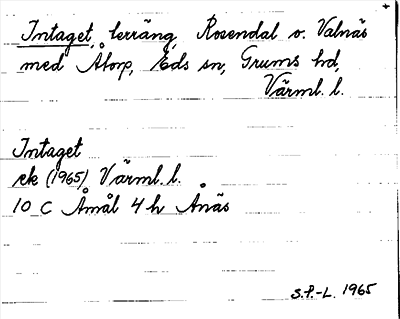 Intaget, terräng, Rosendal o. Valnäs
med Åtorp, Eds sn, Grums hd,
Värml. l.
Intaget
ek (1965) Värml. l.
10 C Åmål 4 h Ånäs
S.P.-L. 1965